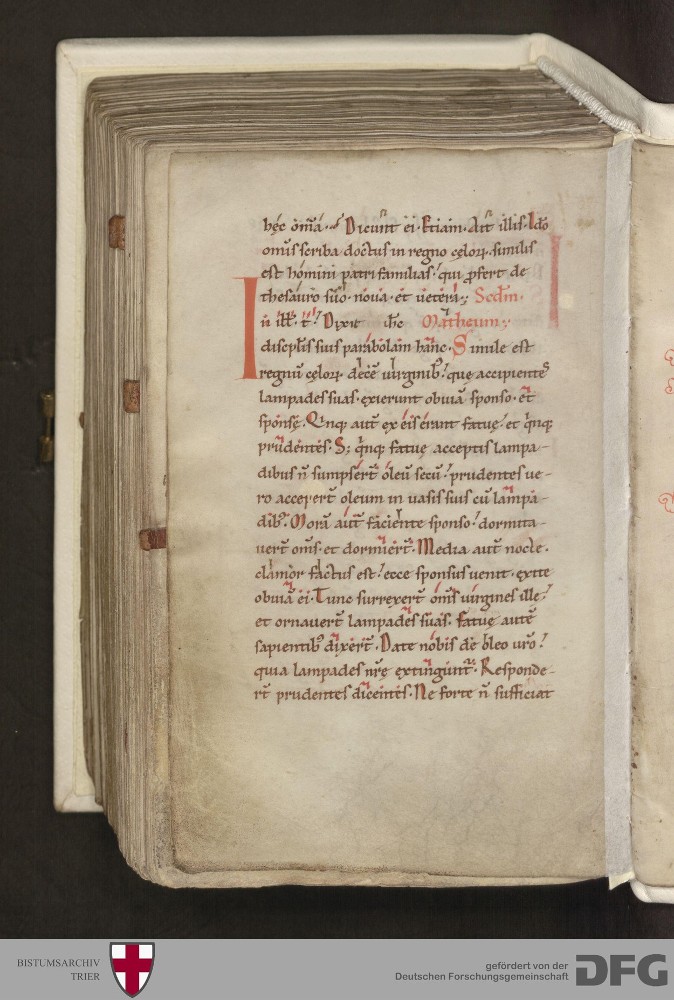 hęc om̄a. Dicunt ei. Etiam. Ait illis. Ido
omīs scriba doctus in regno cęloꝝ. similis
est homini patri familias. qui ꝓfert de
thesauro suo. noua. et uetera. Scdm.
In ill. t. Dixit ihc Matheum.
discipl̄is suis parabolam hanc. Simile est
regnū cęloꝝ. decē uirginib; quę accipientes
lampades suas. exierunt obuiā sponso. et
sponsę. Quinq; aut ex eis erant fatuę. et q̇nq;
prudentes. S; q̇nq; fatuę acceptis lampa-
dibus n̄ sumpserť oleū secū. prudentes ue-
ro acceperť oleum in uasis suis cū lampa-
dib; Morā aut̄ faciente sponso. dormita-
uerť om̄s. et dormierť. Media aut̄ nocte.
clamor factus est. ecce sponsus uenit. exite
obuiā ei. Tunc surrexerť om̄s uirgines ille.
et ornauerť lampades suas. Fatuę autē
sapientib; dixerť. Date nobis de oleo ur̄o.
quia lampades nr̄ę extinguntť. Responde-
rť prudentes dicentes. Ne forte n̄ sufficiat
BISTUMSARCHIV
TRIER
gefördert von der
Deutschen Forschungsgemeinschaft
DFG